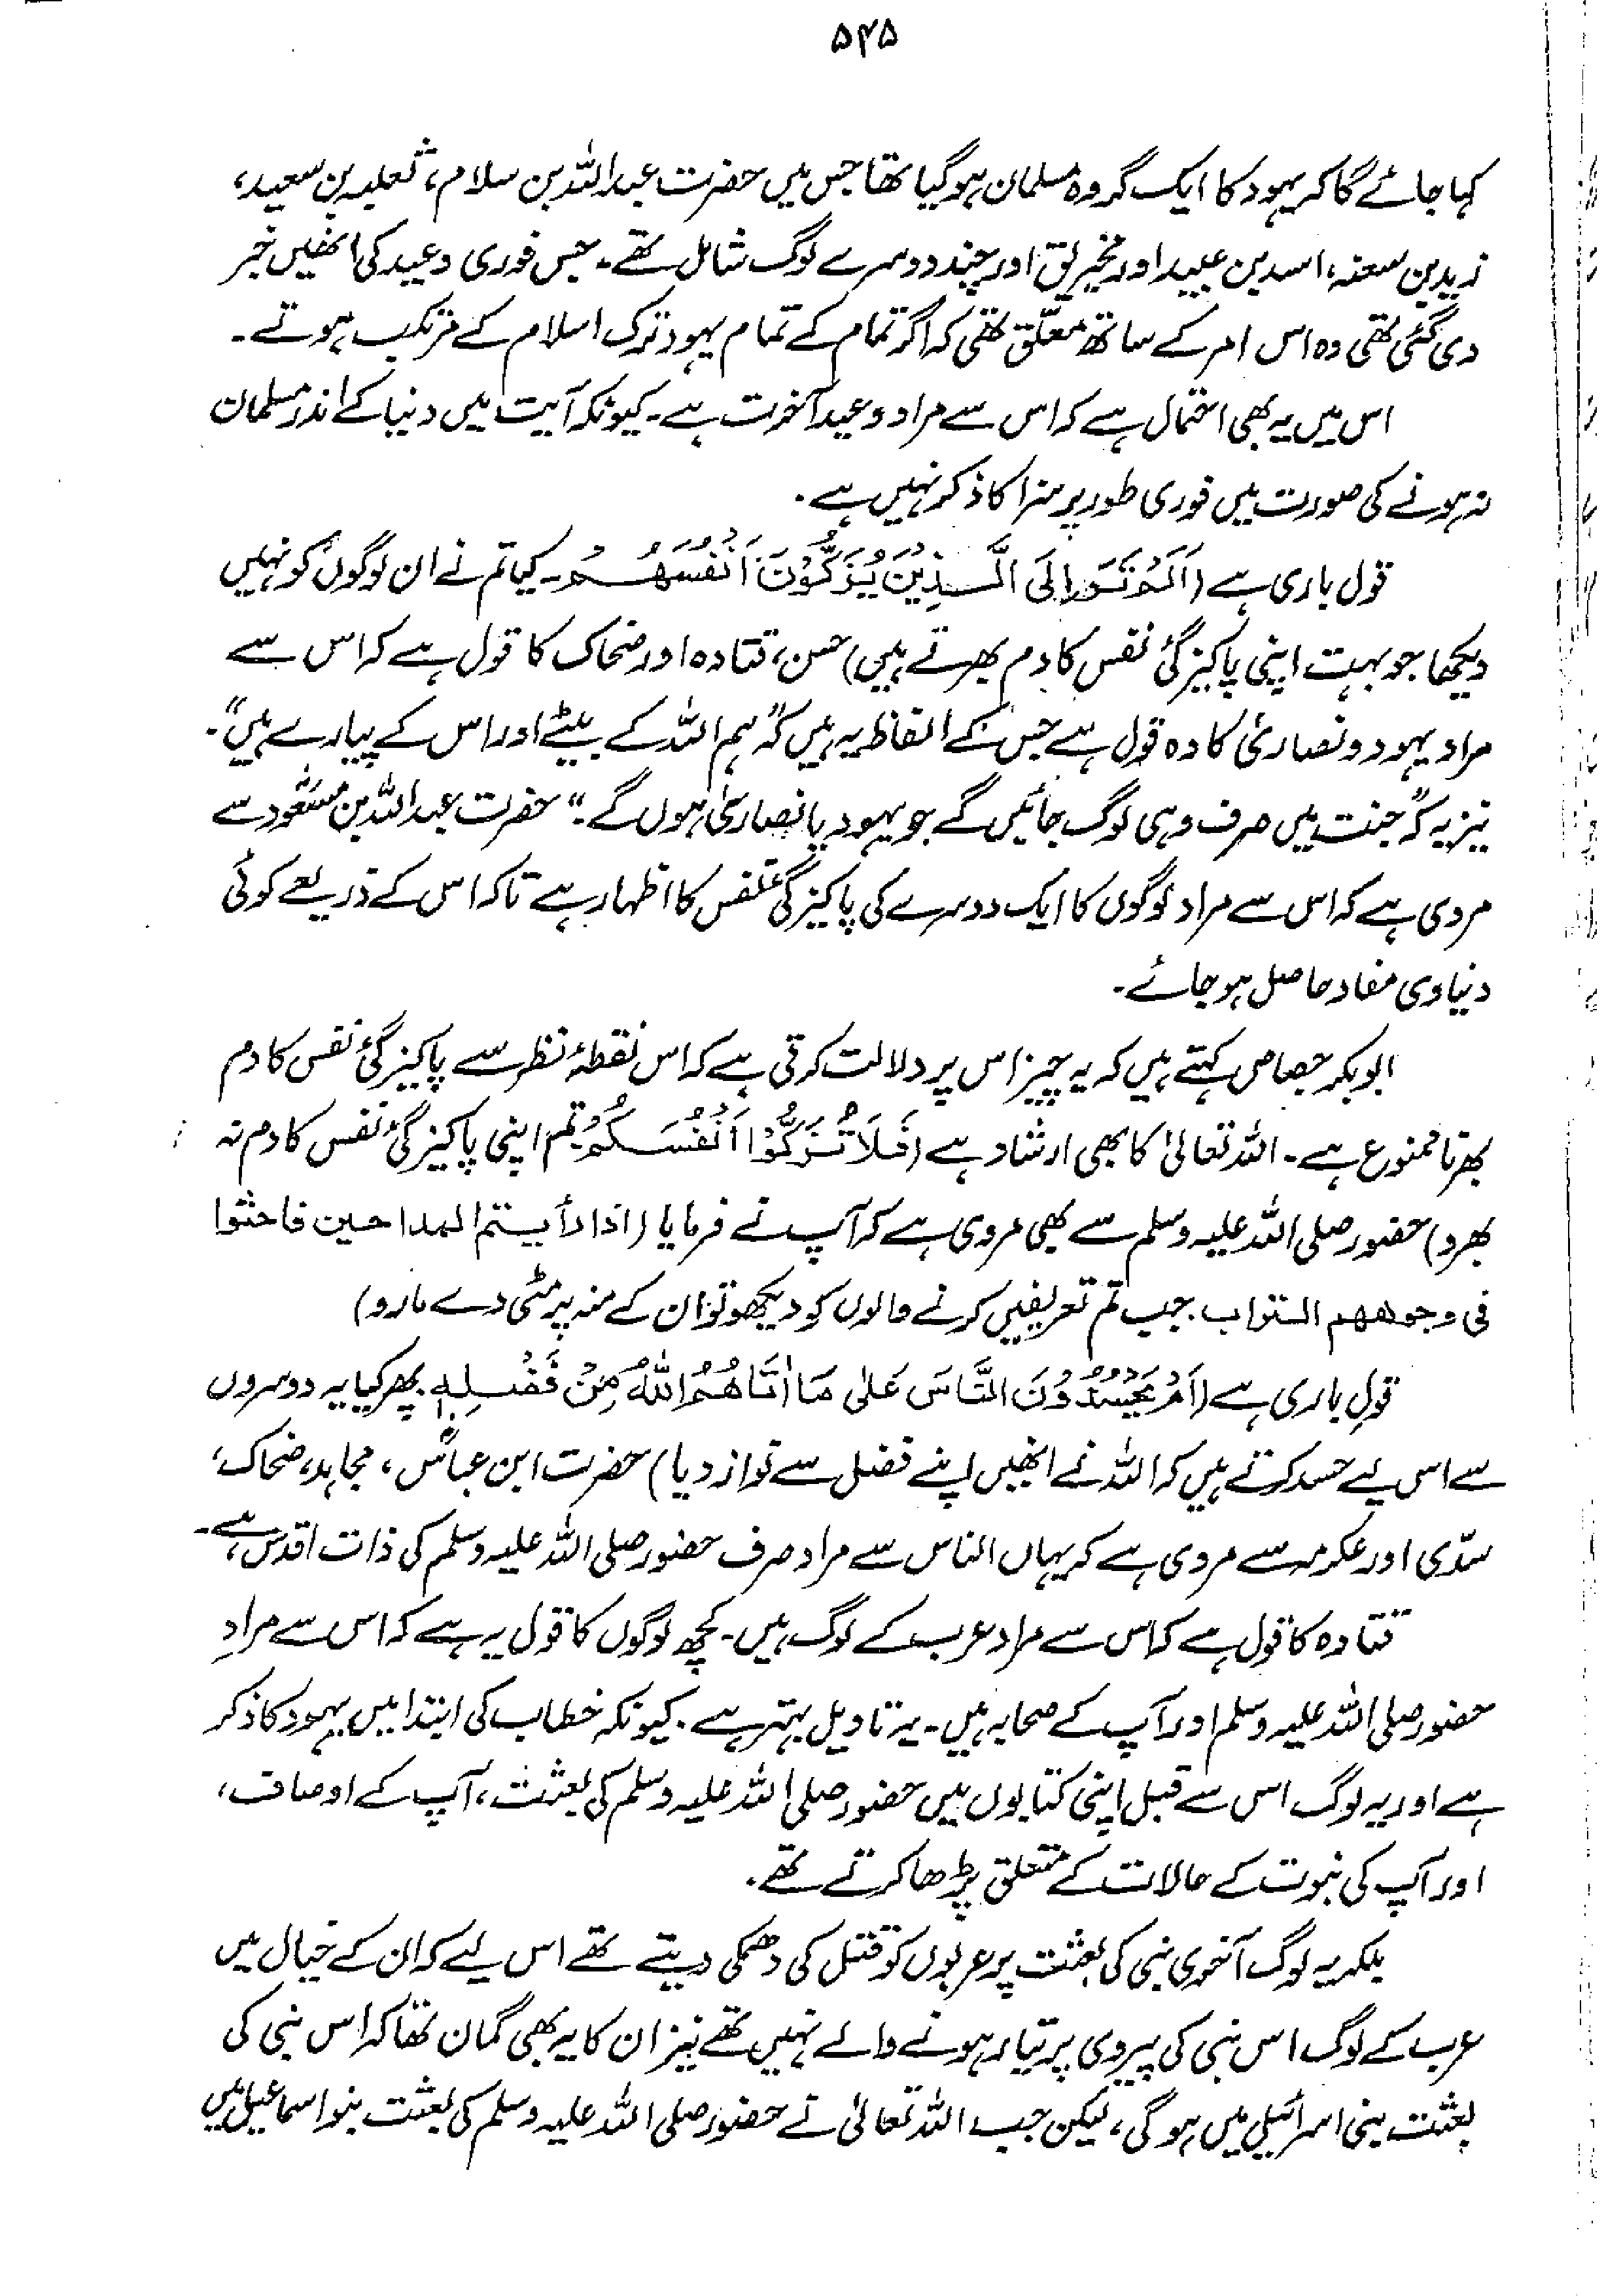 ۵۴۵
کہا جائے گا کہ یہود کا ایک گروہ مسلمان ہوگیا تھا جس میں حضرت عبداللہ بن سلام، ثعلبہ بن سعید،
زید بن سعنہ، اسد بن عبید اور مخیریق اور چند دوسرے لوگ شامل تھے۔ جس فوری وعید کی انھیں خبر
دی گئی تھی وہ اس امر کے ساتھ معلّق تھی کہ اگر تمام کے تمام یہود ترک اسلام کے مرتکب ہوتے۔
اس میں یہ بھی احتمال ہے کہ اس سے مراد وعید آخرت ہے۔ کیونکہ آیت میں دنیا کے اندر مسلمان
نہ ہونے کی صورت میں فوری طور پر سزا کا ذکر نہیں ہے۔
قول باری ہے (اَلَمْ تَرَ اِلَى الَّذِيْنَ يُزَكُّوْنَ اَنْفُسَهُمْ۔ کیا تم نے ان لوگوں کو نہیں
دیکھا جو بہت اپنی پاکیزگیٔ نفس کا دم بھرتے ہیں) حسن، قتادہ اور ضحاک کا قول ہے کہ اس سے
مراد یہود و نصاریٰ کا وہ قول ہے جس کے الفاظ یہ ہیں کہ "ہم اللہ کے بیٹے اور اس کے پیارے ہیں"۔
نیز یہ کہ "جنت میں صرف وہی لوگ جائیں گے جو یہود یا نصاریٰ ہوں گے۔" حضرت عبداللہ بن مسعودؓ سے
مروی ہے کہ اس سے مراد لوگوں کا ایک دوسرے کی پاکیزگیٔ نفس کا اظہار ہے تاکہ اس کے ذریعے کوئی
دنیاوی مفاد حاصل ہو جائے۔
ابوبکر جصاص کہتے ہیں کہ یہ چیز اس پر دلالت کرتی ہے کہ اس نقطۂ نظر سے پاکیزگیٔ نفس کا دم
بھرنا ممنوع ہے۔ اللہ تعالیٰ کا بھی ارشاد ہے (فَلَا تُزَكُّوْا اَنْفُسَكُمْ تم اپنی پاکیزگیٔ نفس کا دم نہ
بھرو) حضور صلی اللہ علیہ وسلم سے بھی مروی ہے کہ آپ نے فرمایا (اذا رأیتم المداحین فاحثوا
فی وجوههم التراب۔ جب تم تعریفیں کرنے والوں کو دیکھو تو ان کے منہ پر مٹی دے مارو)
قولِ باری ہے (اَمْ يَحْسُدُوْنَ النَّاسَ عَلٰى مَا اٰتَاهُمُ اللّٰهُ مِنْ فَضْلِهٖ۔ پھر کیا یہ دوسروں
سے اس لیے حسد کرتے ہیں کہ اللہ نے انھیں اپنے فضل سے نواز دیا) حضرت ابن عباسؓ، مجاہد، ضحاک،
سدّی اور عکرمہ سے مروی ہے کہ یہاں الناس سے مراد صرف حضور صلی اللہ علیہ وسلم کی ذات اقدس ہے۔
قتادہ کا قول ہے کہ اس سے مراد عرب کے لوگ ہیں۔ کچھ لوگوں کا قول یہ ہے کہ اس سے مرادِ
حضور صلی اللہ علیہ وسلم اور آپ کے صحابہ ہیں۔ یہ تاویل بہتر ہے۔ کیونکہ خطاب کی ابتدا میں یہود کا ذکر
ہے اور یہ لوگ اس سے قبل اپنی کتابوں میں حضور صلی اللہ علیہ وسلم کی بعثت، آپ کے اوصاف،
اور آپ کی نبوت کے حالات کے متعلق پڑھا کرتے تھے۔
بلکہ یہ لوگ آخری نبی کی بعثت پر عربوں کو قتل کی دھمکی دیتے تھے اس لیے کہ ان کے خیال میں
عرب کے لوگ اس نبی کی پیروی پر تیار ہونے والے نہیں تھے نیز ان کا یہ بھی گمان تھا کہ اس نبی کی
بعثت بنی اسرائیل میں ہوگی، لیکن جب اللہ تعالیٰ نے حضور صلی اللہ علیہ وسلم کی بعثت بنو اسماعیل میں